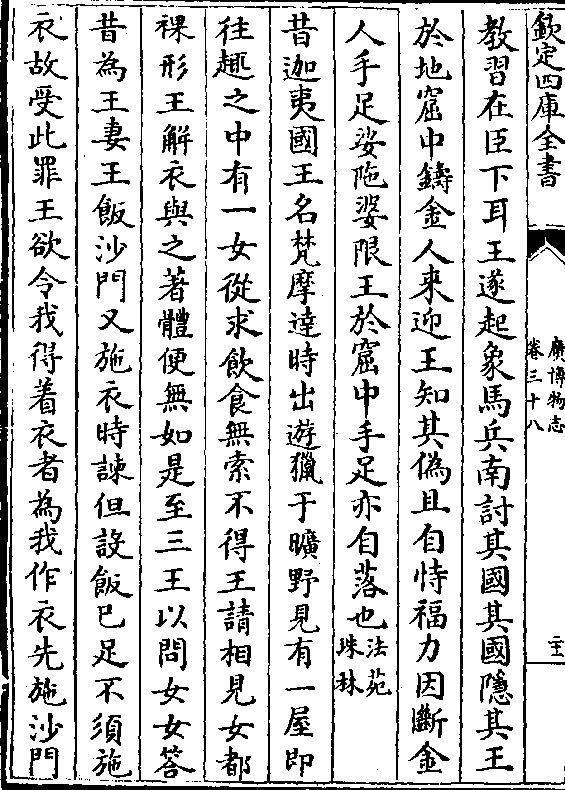 欽定四庫全書
廣博物志
卷三十八
教習在臣下耳王遂起象馬兵南討其國其國隱其王
於地窟中鑄金人來迎王知其偽且自恃福力因斷金
人手足娑陁婆限王於窟中手足亦自落也法苑珠林
昔迦夷國王名梵摩達時出遊獵于曠野見有一屋即
往趣之中有一女從求飲食無索不得王請相見女都
裸形王解衣與之著體便無如是至三王以問女女答
昔為王妻王飯沙門又施衣時諫但設飯已足不須施
衣故受此罪王欲令我得着衣者為我作衣先施沙門